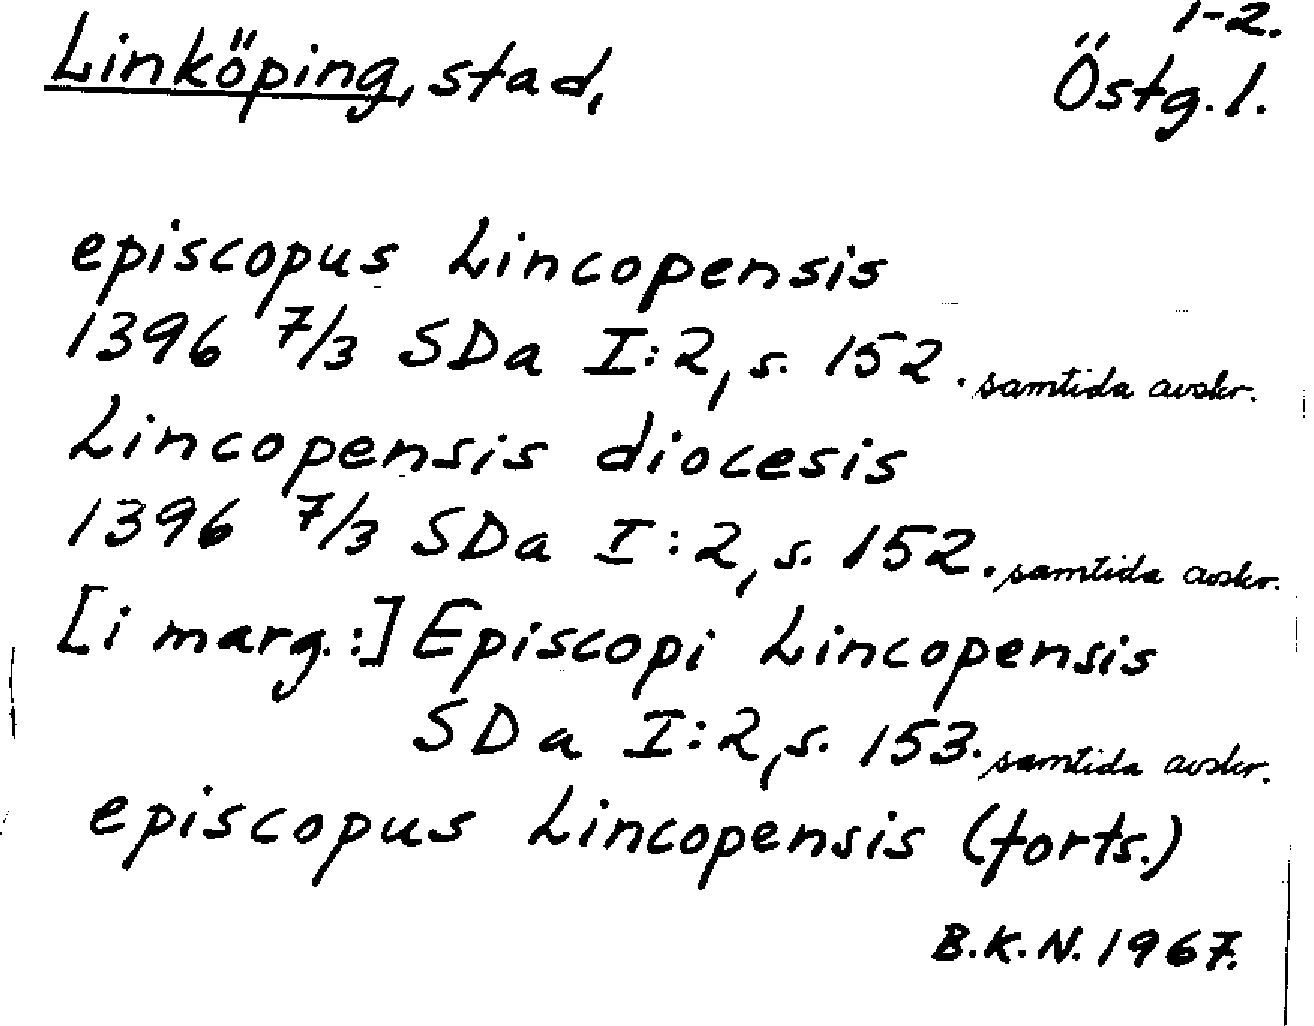 1-2.
Linköping, stad, Östg. l.
episcopus Lincopensis
1396 7/3 SDa I:2, s. 152. samtida avskr.
Lincopensis diocesis
1396 7/3 SDa I:2, s. 152. samtida avskr.
[i marg.:] Episcopi Lincopensis
SDa I:2, s. 153. samtida avskr.
episcopus Lincopensis (forts.)
B.K.N. 1967.